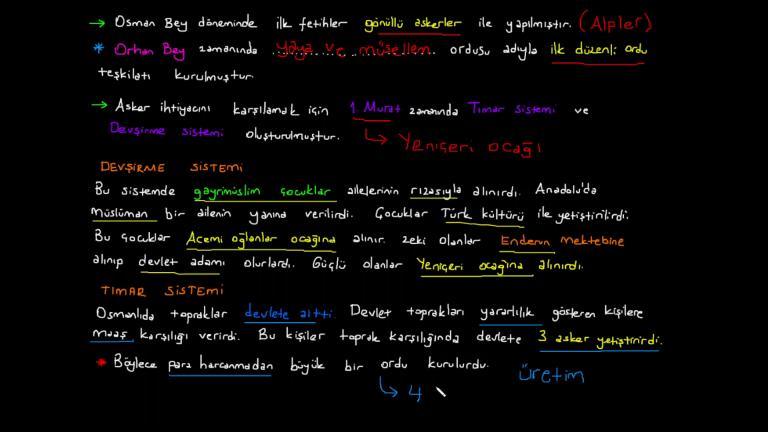 → Osman Bey döneminde ilk fetihler gönüllü askerler ile yapılmıştır. (Alpler)
* Orhan Bey zamanında yaya ve müsellem ordusu adıyla ilk düzenli ordu
teşkilatı kurulmuştur.
→ Asker ihtiyacını karşılamak için 1. Murat zamanında Tımar sistemi ve
Devşirme sistemi oluşturulmuştur.
↳ Yeniçeri ocağı
DEVŞİRME SİSTEMİ
Bu sistemde gayrimüslim çocuklar ailelerinin rızasıyla alınırdı. Anadolu'da
müslüman bir ailenin yanına verilirdi. Çocuklar Türk kültürü ile yetiştirilirdi.
Bu çocuklar Acemi oğlanlar ocağına alınır. zeki olanlar Enderun mektebine
alınıp devlet adamı olurlardı. Güçlü olanlar Yeniçeri ocağına alınırdı.
TIMAR SİSTEMİ
Osmanlıda topraklar devlete aitti. Devlet toprakları yararlılık gösteren kişilere
maaş karşılığı verirdi. Bu kişiler toprak karşılığında devlete 3 asker yetiştirirdi.
* Böylece para harcanmadan büyük bir ordu kurulurdu. üretim
↳ 4